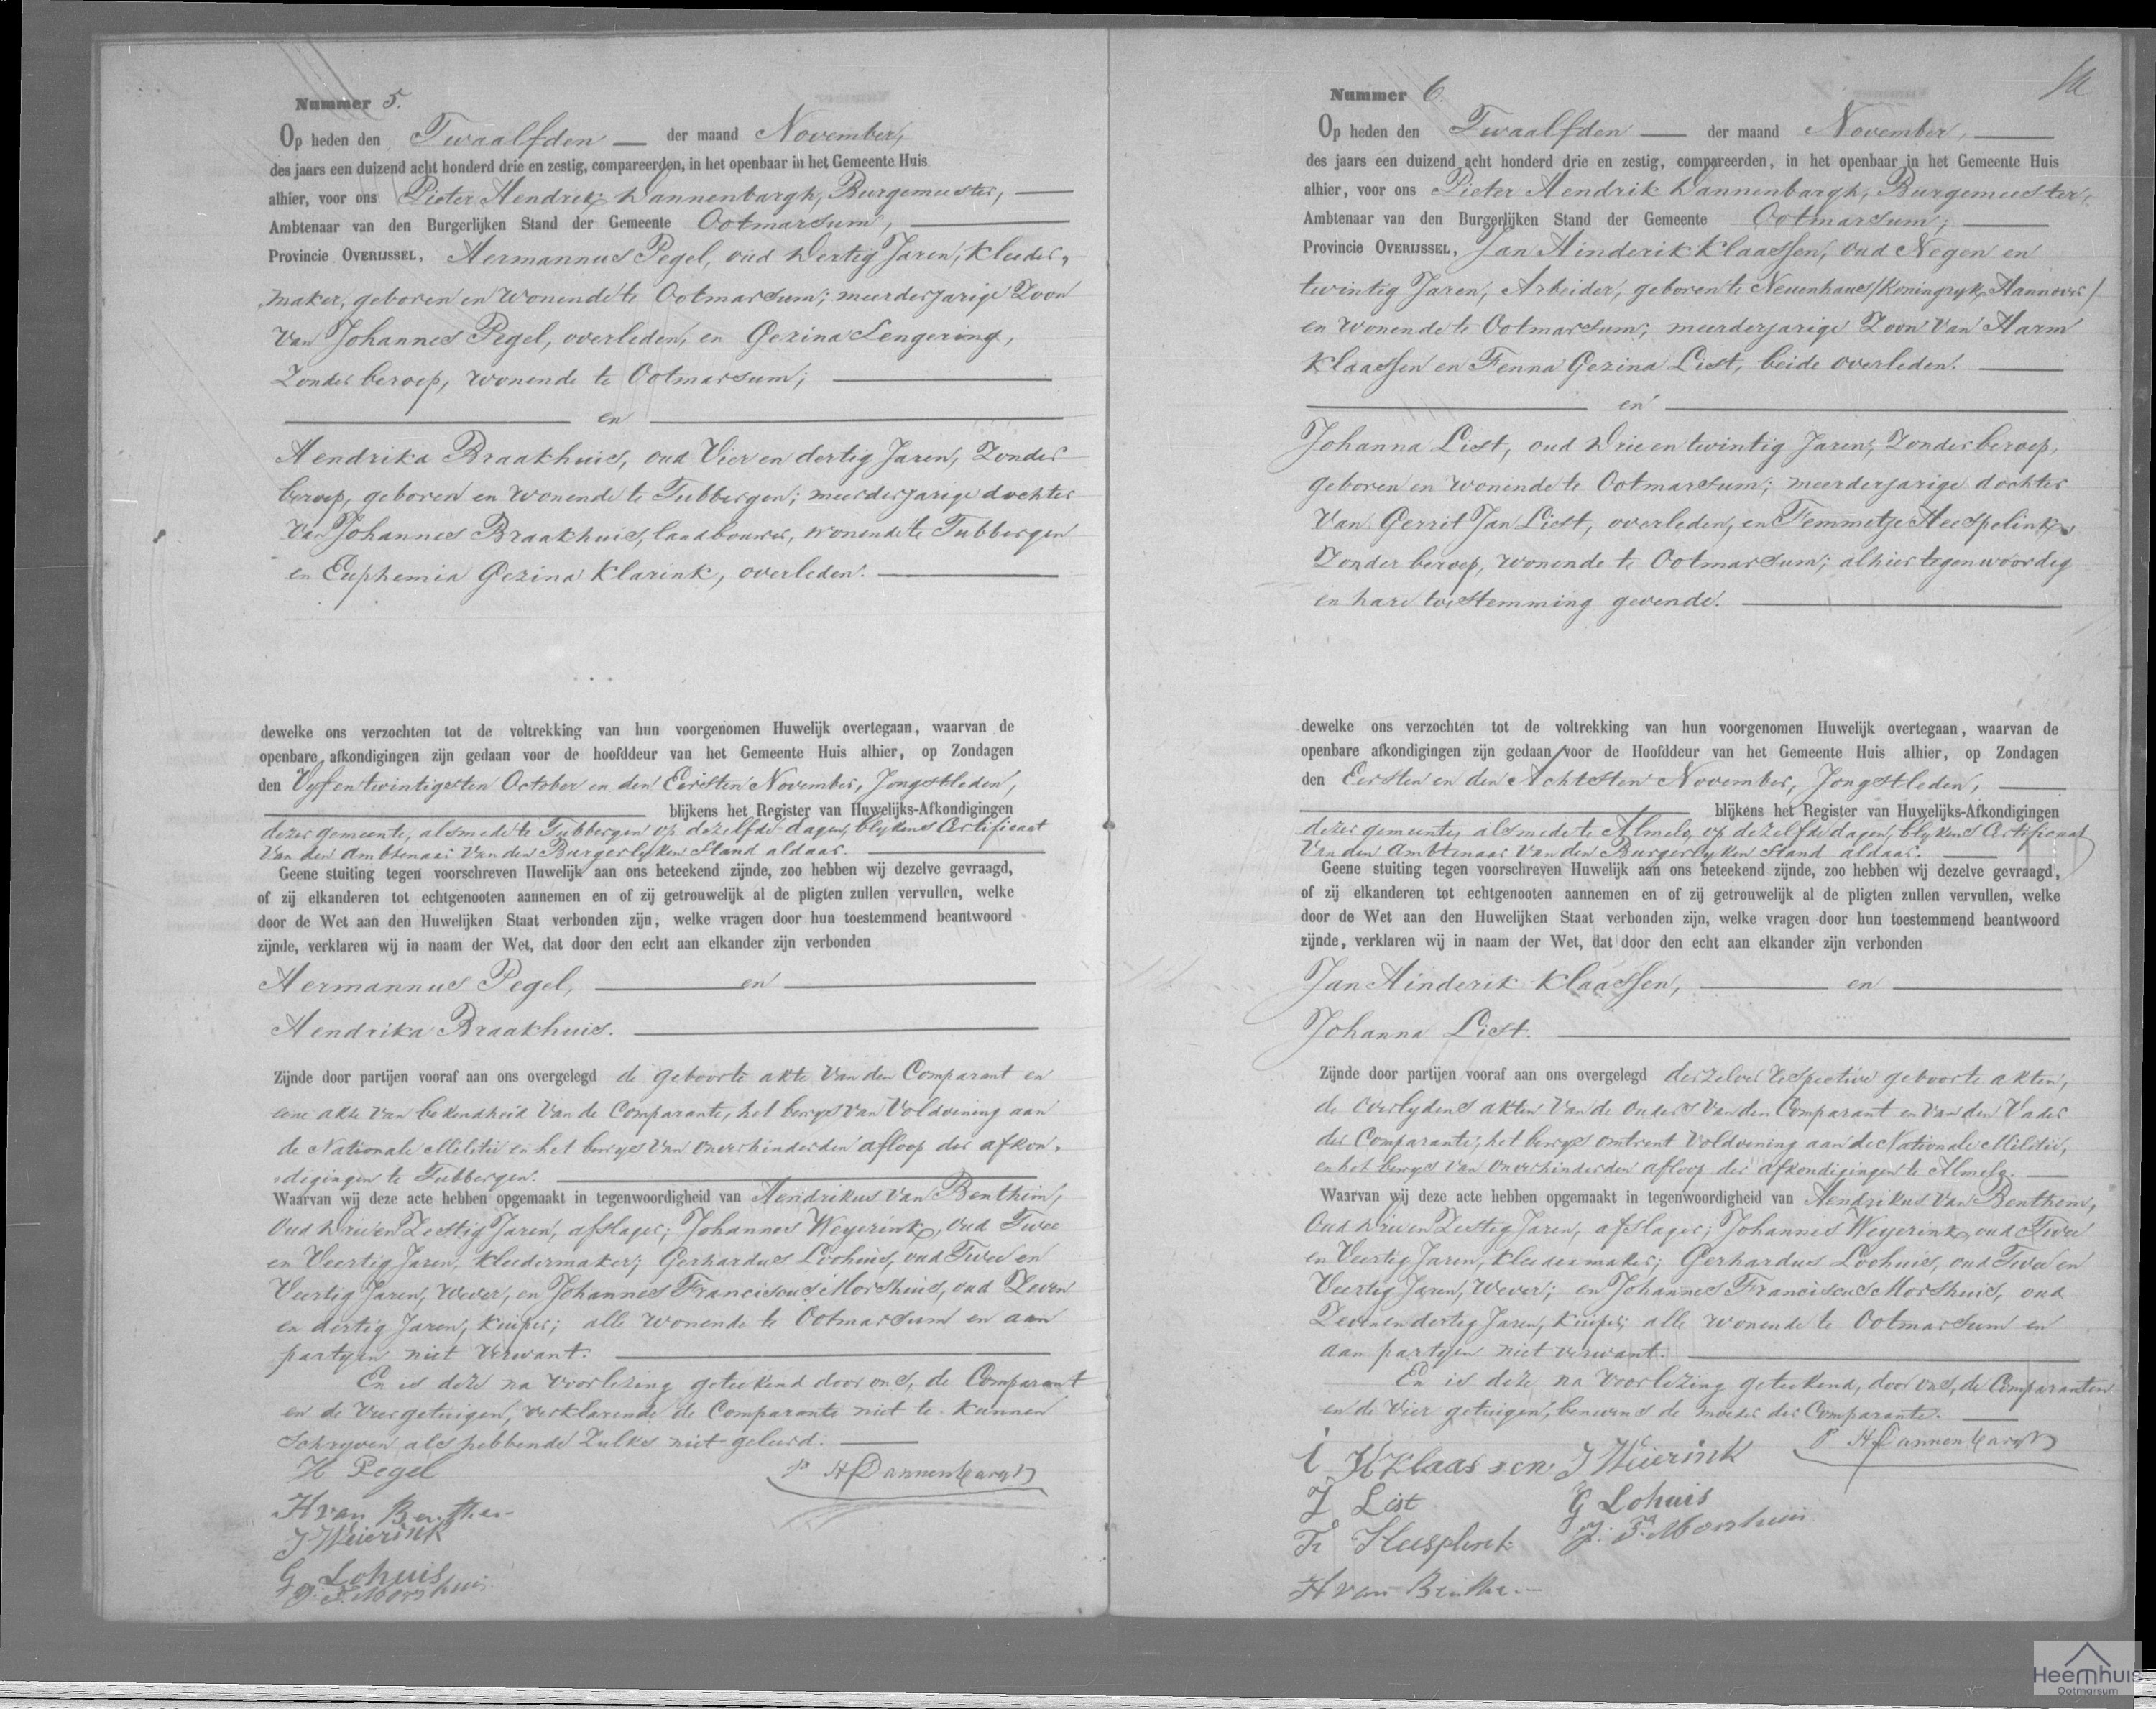 Nummer 5.
Op heden den Twaalfden — der maand November,
des jaars een duizend acht honderd drie en zestig, compareerden, in het openbaar in het Gemeente Huis
alhier, voor ons Pieter Hendrik Dannenbargh, Burgemeester,
Ambtenaar van den Burgerlijken Stand der Gemeente Ootmarsum,
Provincie OVERIJSSEL, Hermannus Pegel, oud dertig Jaren, kleeder-
maker, geboren en wonende te Ootmarsum; meerderjarige Zoon
van Johannes Pegel, overleden, en Gezina Lengering,
Zonder beroep, wonende te Ootmarsum;
en
Hendrika Braakhuis, oud Vier en dertig Jaren, Zonder
beroep, geboren en wonende te Tubbergen; meerderjarige dochter
van Johannes Braakhuis, landbouwer, wonende te Tubbergen
en Euphemia Gezina Klarink, overleden.
dewelke ons verzochten tot de voltrekking van hun voorgenomen Huwelijk overtegaan, waarvan de
openbare afkondigingen zijn gedaan voor de hoofddeur van het Gemeente Huis alhier, op Zondagen
den Vyf en twintigsten October en den Eersten November, Jongstleden,
blijkens het Register van Huwelijks-Afkondigingen
dezer gemeente, alsmede te Tubbergen op dezelfde dagen, blykens Certificaat
van den Ambtenaar van den Burgerlyken Stand aldaar.
Geene stuiting tegen voorschreven Huwelijk aan ons beteekend zijnde, zoo hebben wij dezelve gevraagd,
of zij elkanderen tot echtgenooten aannemen en of zij getrouwelijk al de pligten zullen vervullen, welke
door de Wet aan den Huwelijken Staat verbonden zijn, welke vragen door hun toestemmend beantwoord
zijnde, verklaren wij in naam der Wet, dat door den echt aan elkander zijn verbonden
Hermannus Pegel, en
Hendrika Braakhuis.
Zijnde door partijen vooraf aan ons overgelegd de geboorte akte van den Comparant en
eene akte van bekendheid van de Comparante, het bewys van Voldoening aan
de Nationale Militie en het bewys van onverhinderden afloop der afkon-
digingen te Tubbergen.
Waarvan wij deze acte hebben opgemaakt in tegenwoordigheid van Hendrikus van Benthem,
oud Drie en Zestig Jaren, afslager; Johannes Weyerink, oud Twee
en Veertig Jaren, kleedermaker; Gerhardus Loohuis, oud Twee en
Veertig Jaren, Wever, en Johannes Franciscus Morshuis, oud Zeven
en dertig Jaren, Kuiper; alle wonende te Ootmarsum en aan
partyen niet verwant.
En is deze na voorlezing geteekend door ons, de Comparant
en de Vier getuigen, verklarende de Comparante niet te kunnen
schryven als hebbende zulks niet geleerd.
H Pegel
P H Dannenbargh
H van Benthem
J Weierink
G Lohuis
J. F. Morshuis
Nummer 6.
Op heden den Twaalfden — der maand November,
des jaars een duizend acht honderd drie en zestig, compareerden, in het openbaar in het Gemeente Huis
alhier, voor ons Pieter Hendrik Dannenbargh, Burgemeester,
Ambtenaar van den Burgerlijken Stand der Gemeente Ootmarsum,
Provincie OVERIJSSEL, Jan Hinderik Klaassen, oud Negen en
twintig Jaren, Arbeider, geboren te Neuenhaus /Koningryk Hannover/
en wonende te Ootmarsum; meerderjarige Zoon van Harm
Klaassen en Fenna Gezina List, beide overleden.
en
Johanna List, oud Drie en twintig Jaren, Zonder beroep,
geboren en wonende te Ootmarsum; meerderjarige dochter
van Gerrit Jan List, overleden, en Femmetje Heespelink,
Zonder beroep, wonende te Ootmarsum; alhier tegenwoordig
en hare toestemming gevende.
dewelke ons verzochten tot de voltrekking van hun voorgenomen Huwelijk overtegaan, waarvan de
openbare afkondigingen zijn gedaan voor de Hoofddeur van het Gemeente Huis alhier, op Zondagen
den Eersten en den Achtsten November, Jongstleden,
blijkens het Register van Huwelijks-Afkondigingen
dezer gemeente, alsmede te Almelo, op dezelfde dagen, blykens Certificaat
van den Ambtenaar van den Burgerlyken Stand aldaar.
Geene stuiting tegen voorschreven Huwelijk aan ons beteekend zijnde, zoo hebben wij dezelve gevraagd,
of zij elkanderen tot echtgenooten aannemen en of zij getrouwelijk al de pligten zullen vervullen, welke
door de Wet aan den Huwelijken Staat verbonden zijn, welke vragen door hun toestemmend beantwoord
zijnde, verklaren wij in naam der Wet, dat door den echt aan elkander zijn verbonden
Jan Hinderik Klaassen, en
Johanna List.
Zijnde door partijen vooraf aan ons overgelegd derzelver respective geboorte akten,
de overlydens akten van de ouders van den Comparant en van den Vader
der Comparante, het bewys omtrent Voldoening aan de Nationale Militie,
en het bewys van onverhinderden afloop der afkondigingen te Almelo.
Waarvan wij deze acte hebben opgemaakt in tegenwoordigheid van Hendrikus van Benthem,
oud Drie en Zestig Jaren, afslager; Johannes Weyerink, oud Twee
en Veertig Jaren, kleedermaker; Gerhardus Loohuis, oud Twee en
Veertig Jaren, Wever; en Johannes Franciscus Morshuis, oud
Zeven en dertig Jaren, Kuiper; alle wonende te Ootmarsum en
aan partyen niet verwant.
En is deze na voorlezing geteekend, door ons, de Comparanten
en de Vier getuigen, benevens de moeder der Comparante.
P H Dannenbargh
i H Klaassen
J Weierink
J List
G Lohuis
F Heesplink
J. F. Morshuis
H van Benthem
Heemhuis
Ootmarsum